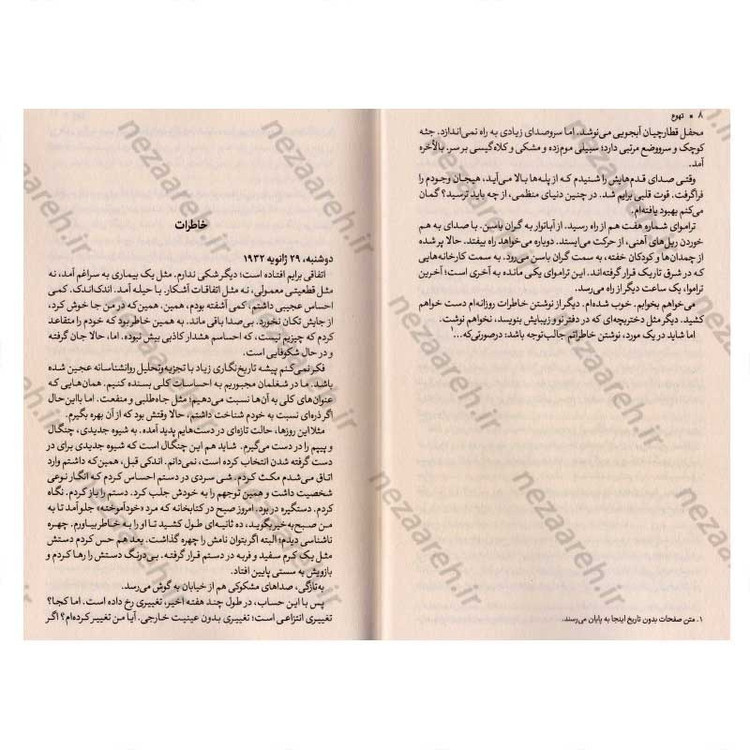 ۸ • تهوع
محفل قطارچیان آبجویی می‌نوشد. اما سروصدای زیادی به راه نمی‌اندازد. جثه
کوچک و سرووضع مرتبی دارد؛ سبیلی موم‌زده و مشکی و کلاه‌گیسی بر سر. بالأخره
آمد.
وقتی صدای قدم‌هایش را شنیدم که از پله‌ها بالا می‌آید، هیجان وجودم را
فراگرفت. قوت قلبی برایم شد. در چنین دنیای منظمی، از چه باید ترسید؟ گمان
می‌کنم بهبود یافته‌ام.
تراموای شماره هفت هم از راه رسید. از آباتوار به گران باسن. با صدای به هم
خوردن ریل‌های آهنی، از حرکت می‌ایستد. دوباره می‌خواهد راه بیفتد. حالا پر شده
از چمدان‌ها و کودکان خفته، به سمت گران باسن می‌رود. به سمت کارخانه‌هایی
که در شرق تاریک قرار گرفته‌اند. این تراموای یکی مانده به آخری است؛ آخرین
تراموا، یک ساعت دیگر از راه می‌رسد.
می‌خواهم بخوابم. خوب شده‌ام. دیگر از نوشتن خاطرات روزانه‌ام دست خواهم
کشید. دیگر مثل دختربچه‌ای که در دفتر نو و زیبایش بنویسد، نخواهم نوشت.
اما شاید در یک مورد، نوشتن خاطراتم جالب توجه باشد: درصورتی‌که...¹
۱. متن صفحات بدون تاریخ اینجا به پایان می‌رسند.
خاطرات
دوشنبه، ۲۹ ژانویه ۱۹۳۲
اتفاقی برایم افتاده است؛ دیگر شکی ندارم. مثل یک بیماری به سراغم آمد، نه
مثل قطعیتی معمولی، نه مثل اتفاقات آشکار. با حیله آمد. اندک‌اندک. کمی
احساس عجیبی داشتم، کمی آشفته بودم، همین. همین‌که در من جا خوش کرد،
از جایش تکان نخورد. بی‌صدا باقی ماند. به همین خاطر بود که خودم را متقاعد
کردم که چیزیم نیست، که احساسم هشدار کاذبی بیش نبوده. اما، حالا جان گرفته
و در حال شکوفایی است.
فکر نمی‌کنم پیشه تاریخ‌نگاری زیاد با تجزیه‌وتحلیل روانشناسانه عجین شده
باشد. ما در شغلمان مجبوریم به احساسات کلی بسنده کنیم. همان‌هایی که
عنوان‌های کلی به آن‌ها نسبت می‌دهیم؛ مثل جاه‌طلبی و منفعت. اما بااین‌حال
اگر ذره‌ای نسبت به خودم شناخت داشتم، حالا وقتش بود که از آن بهره بگیرم.
مثلا این روزها، حالت تازه‌ای در دست‌هایم پدید آمده. به شیوه جدیدی، چنگال
و پیپم را در دست می‌گیرم. شاید هم این چنگال است که شیوه جدیدی برای در
دست گرفته شدن انتخاب کرده است، نمی‌دانم. اندکی قبل، همین‌که داشتم وارد
اتاق می‌شدم مکث کردم. شی سردی در دستم احساس کردم که انگار نوعی
شخصیت داشت و همین توجهم را به خودش جلب کرد. دستم را باز کردم. نگاه
کردم. دستگیره در بود. امروز صبح در کتابخانه که مرد «خودآموخته» جلو آمد تا به
من صبح‌به‌خیر بگوید، ده ثانیه‌ای طول کشید تا او را به خاطر بیاورم. چهره
ناشناسی دیدم؛ البته اگر بتوان نامش را چهره گذاشت. بعد هم حس کردم دستش
مثل یک کرم سفید و فربه در دستم قرار گرفته. بی‌درنگ دستش را رها کردم و
بازویش به سستی پایین افتاد.
به‌تازگی، صداهای مشکوکی هم از خیابان به گوش می‌رسد.
پس با این حساب، در طول چند هفته اخیر، تغییری رخ داده است. اما کجا؟
تغییری انتزاعی است؛ تغییری بدون عینیت خارجی. آیا من تغییر کرده‌ام؟ اگر
nezaareh.ir
nezaareh.ir
nezaareh.ir
nezaareh.ir
nezaareh.ir
nezaareh.ir